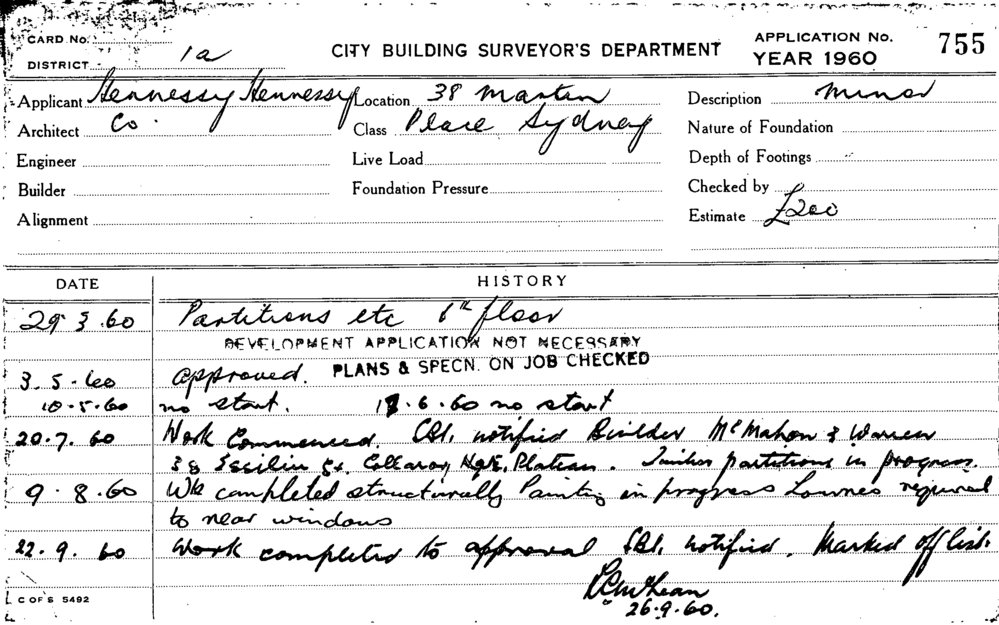 CARD No.
DISTRICT 1a
CITY BUILDING SURVEYOR'S DEPARTMENT
APPLICATION No. 755
YEAR 1960
Applicant Hennessy Hennessy
Location 38 Martin
Description Minor
Architect Co.
Class Place Sydney
Nature of Foundation
Engineer
Live Load
Depth of Footings
Builder
Foundation Pressure
Checked by
Alignment
Estimate £200
DATE HISTORY
29 3 .60 Partitions etc floor
DEVELOPMENT APPLICATION NOT NECESSARY
PLANS & SPECN. ON JOB CHECKED
3. 5. 60 approved.
10.5.60 no start. .6.60 no start
20.7.60 Work Commenced. notified Builder McMahon & Warren
Collaroy Plateau. Timber partitions in progress.
9.8.60 Wk completed structurally Painting in progress required
to near windows
22.9.60 Work completed to approval notified. Marked off list.
26.9.60.
C OF S 5492